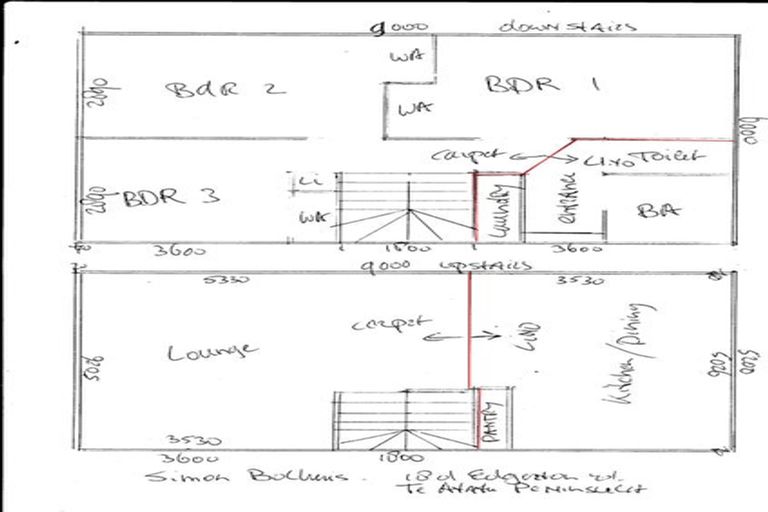 9000 downstairs
WA
BdR 2
BDR 1
2890
WA
6000
carpet
Lino Toilet
Li
BDR 3
2890
WA
Laundry
entrance
BA
3600
1800
3600
9000 upstairs
5330
3530
carpet
LINO
Lounge
Kitchen/Dining
5026
PANTRY
3530
3600
1800
Simon
18d Edgerton rd.
Te Atatu Peninsula